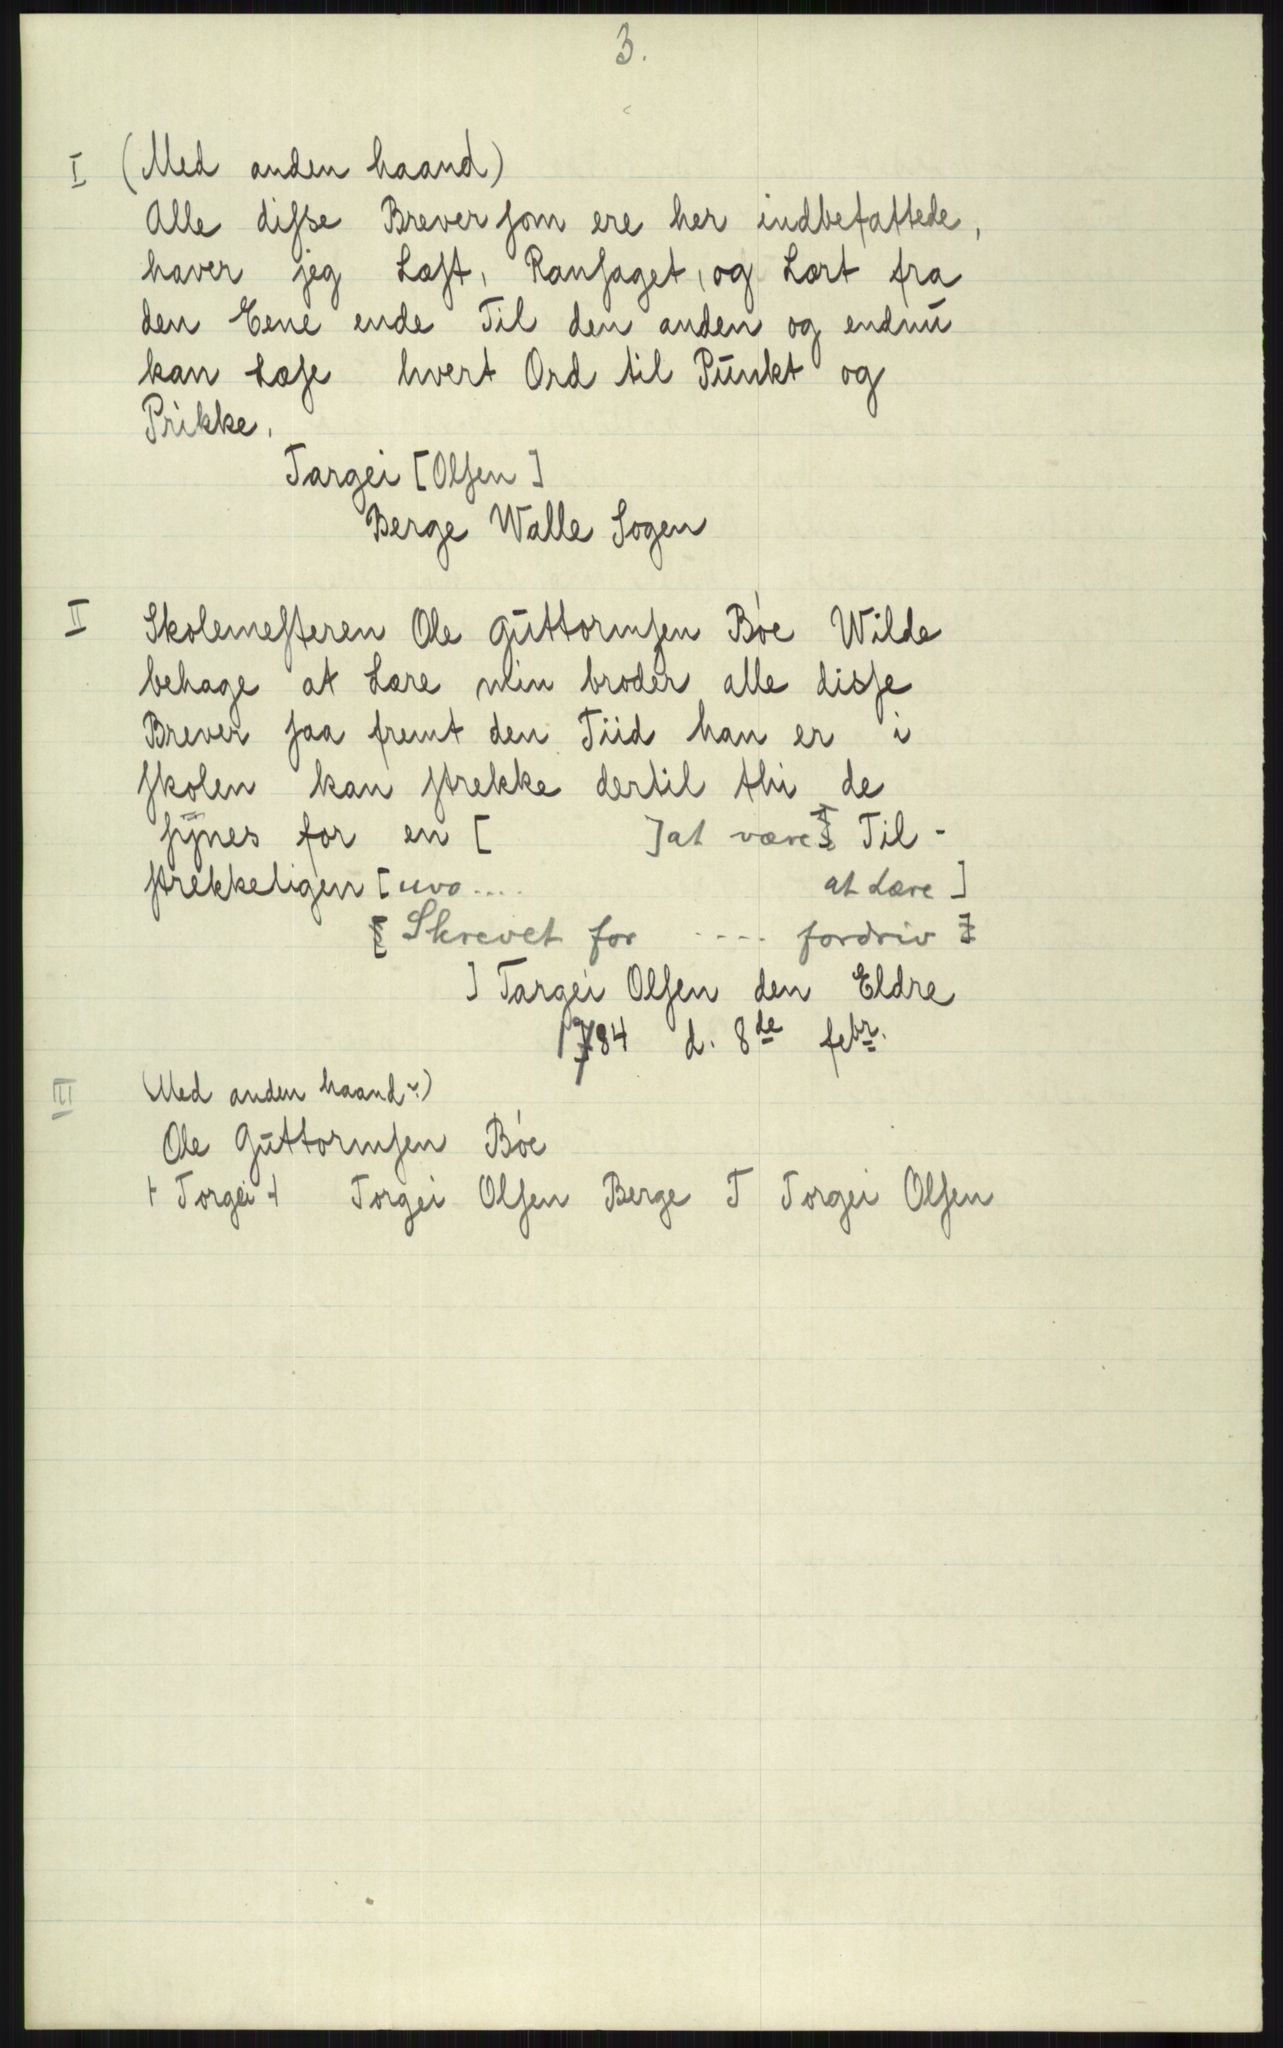 3.
I (Med anden haand)
Alle disse Brever som ere her indbefattede,
haver jeg Læst, Ransaget, og Lært fra
den Eene ende Til den anden og endnu
kan Læse hvert Ord til Punkt og
Prikke.
Targei [Olsen]
Berge Walle Sogen
II Skolemesteren Ole Guttormsen Bóe Wilde
behage at Lære min broder alle disse
Brever saa fremt den Tiid han er i
skolen kan strekke dertil thi de
synes for en [ ] at være Til-
strekkeligen [uvo.... at Lære]
[Skrevet for .... fordriv]
] Targei Olsen den Eldre
1784 d. 8de febr.
III (Med anden haand?)
Ole Guttormsen Bóe
+ Torgei + Torgei Olsen Berge T Torgei Olsen